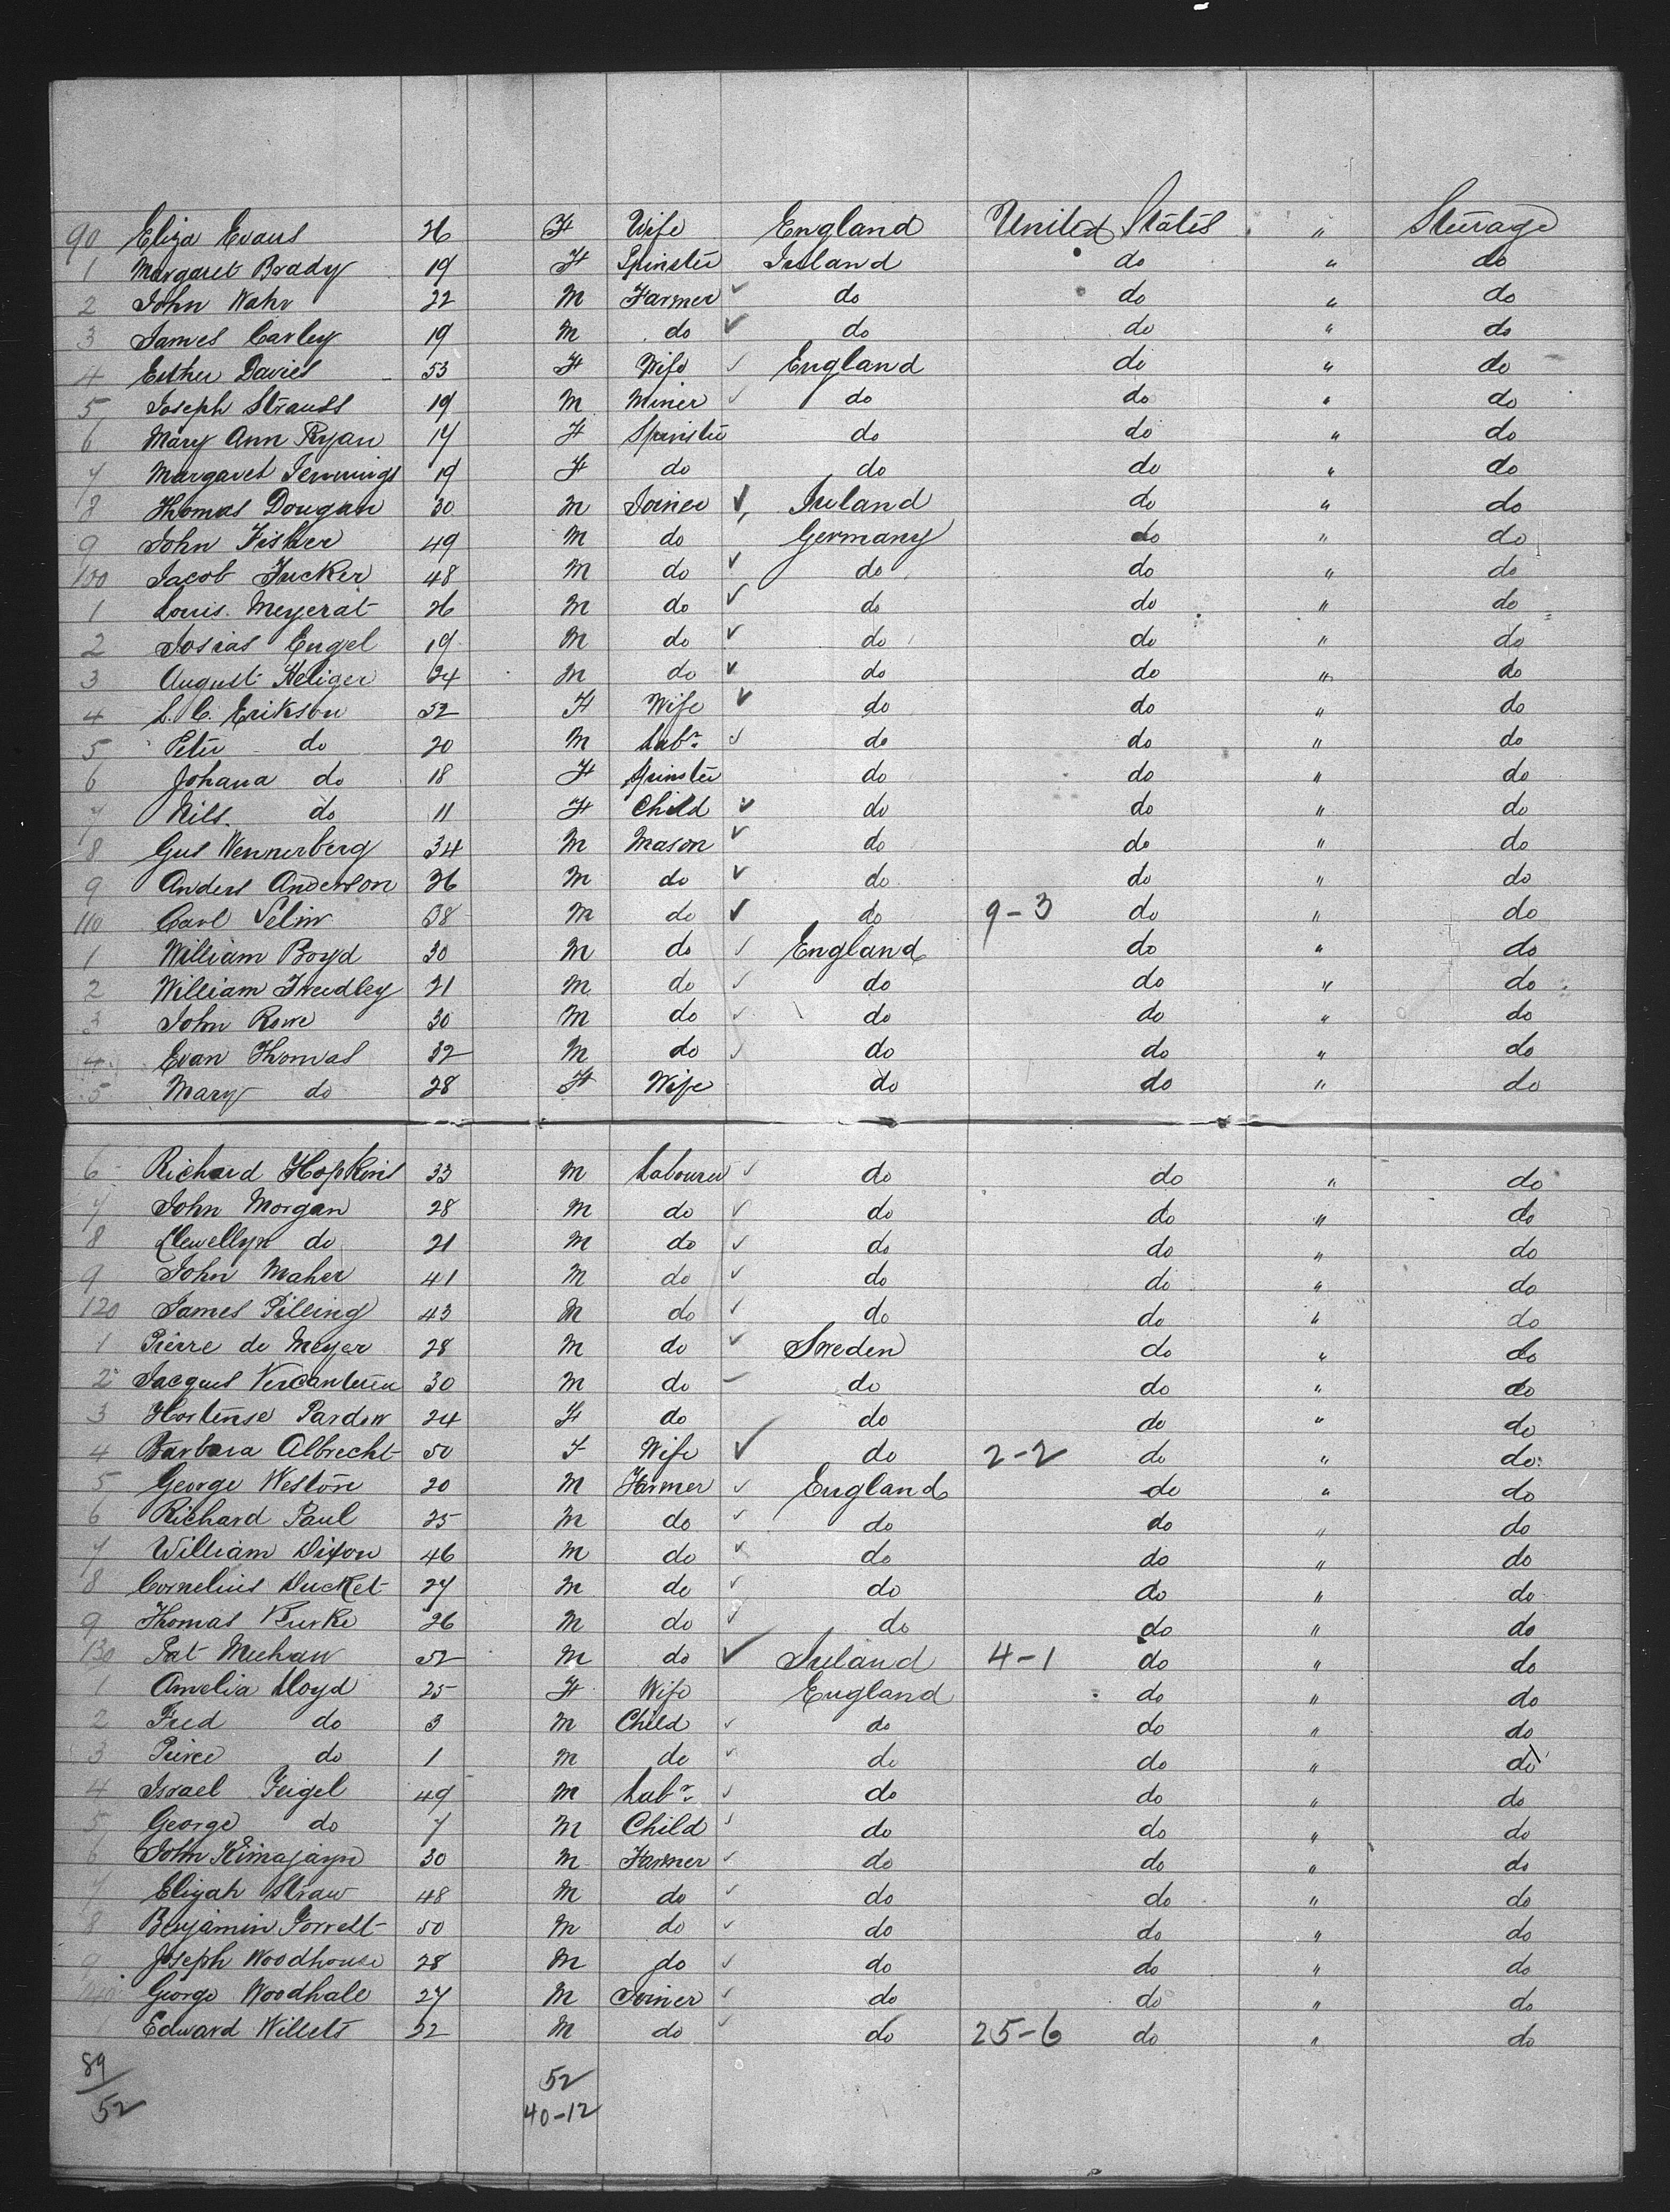 90 Eliza Evans 26 F Wife England United States " Steerage
1 Margaret Brady 19 F Spinster Ireland do " do
2 John Wahr 22 M Farmer ✓ do do " do
3 James Carley 19 M do ✓ do do " do
4 Esther Davies 53 F Wife ✓ England do " do
5 Joseph Strauss 19 M Miner ✓ do do " do
6 Mary Ann Ryan 17 F Spinster do do " do
7 Margaret Jennings 19 F do do do " do
8 Thomas Dougan 30 M Joiner ✓ Ireland do " do
9 John Fisher 49 M do Germany do " do
100 Jacob Tucker 48 M do ✓ do do " do
1 Louis Meyerat 26 M do ✓ do do " do
2 Josias Engel 19 M do ✓ do do " do
3 August Heliger 24 M do ✓ do do " do
4 L. C. Erikson 52 F Wife ✓ do do " do
5 Peter do 20 M Labr ✓ do do " do
6 Johana do 18 F Spinster do do " do
7 Nils do 11 F Child ✓ do do " do
8 Gus Wennerberg 34 M Mason ✓ do do " do
9 Anders Anderson 26 M do ✓ do do " do
110 Carl Selin 38 M do ✓ do 9-3 do " do
1 William Boyd 30 M do ✓ England do " do
2 William Treedley 21 M do ✓ do do " do
3 John Rowe 30 M do ✓ do do " do
4 Evan Thomas 32 M do ✓ do do " do
5 Mary do 28 F Wife do do " do
6 Richard Hopkins 33 M Labourer ✓ do do " do
7 John Morgan 28 M do ✓ do do " do
8 Llewellyn do 21 M do ✓ do do " do
9 John Maher 41 M do ✓ do do " do
120 James Pilling 43 M do ✓ do do " do
1 Pierre de Meyer 28 M do ✓ Sweden do " do
2 Jacques Vercanteren 30 M do - do do " do
3 Hortense Pardon 24 F do do do " do
4 Barbara Albrecht 50 F Wife ✓ do 2-2 do " do
5 George Weston 20 M Farmer ✓ England do " do
6 Richard Paul 25 M do ✓ do do " do
7 William Dixon 46 M do ✓ do do " do
8 Cornelius Ducket 27 M do ✓ do do " do
9 Thomas Burke 26 M do ✓ do do " do
130 Pat Meehan 52 M do ✓ Ireland 4-1 do " do
1 Amelia Lloyd 25 F Wife England do " do
2 Fred do 3 M Child ✓ do do " do
3 Peirce do 1 M do ✓ do do " do
4 Israel Feigel 49 M Labr ✓ do do " do
5 George do 7 M Child ✓ do do " do
6 John 30 M Farmer ✓ do do " do
7 Elijah Straw 48 M do ✓ do do " do
8 Benjamin 50 M do ✓ do do " do
9 Joseph Woodhouse 28 M do ✓ do do " do
140 George Woodhall 27 M Joiner ✓ do do " do
1 Edward Willets 22 M do ✓ do 25-6 do " do
89/52 52
40-12